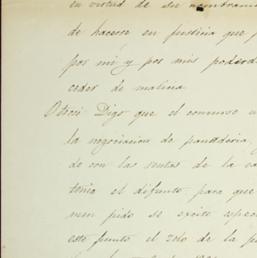 en virtud de su nombram
de hacerse en justicia que p
por mi y por mis poderd
ceder de malicia
Otrosi Digo que el concurso
la negociacion de panaderia
de con las rentas de la ca
tenia el difunto para que
men pido se excite espec
este punto el zelo de la p